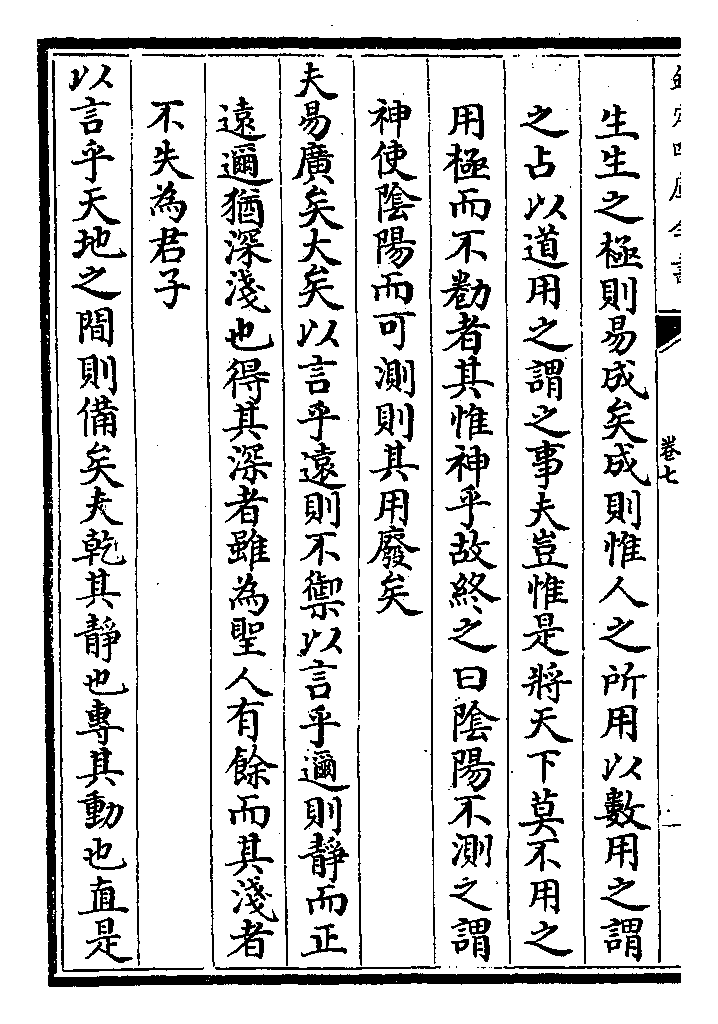 欽定四庫全書
卷七
生生之極則易成矣成則惟人之所用以數用之謂
之占以道用之謂之事夫豈惟是將天下莫不用之
用極而不勌者其惟神乎故終之曰隂陽不測之謂
神使隂陽而可測則其用廢矣
夫易廣矣大矣以言乎遠則不禦以言乎邇則靜而正
遠邇猶深淺也得其深者雖為聖人有餘而其淺者
不失為君子
以言乎天地之間則備矣夫乾其靜也專其動也直是